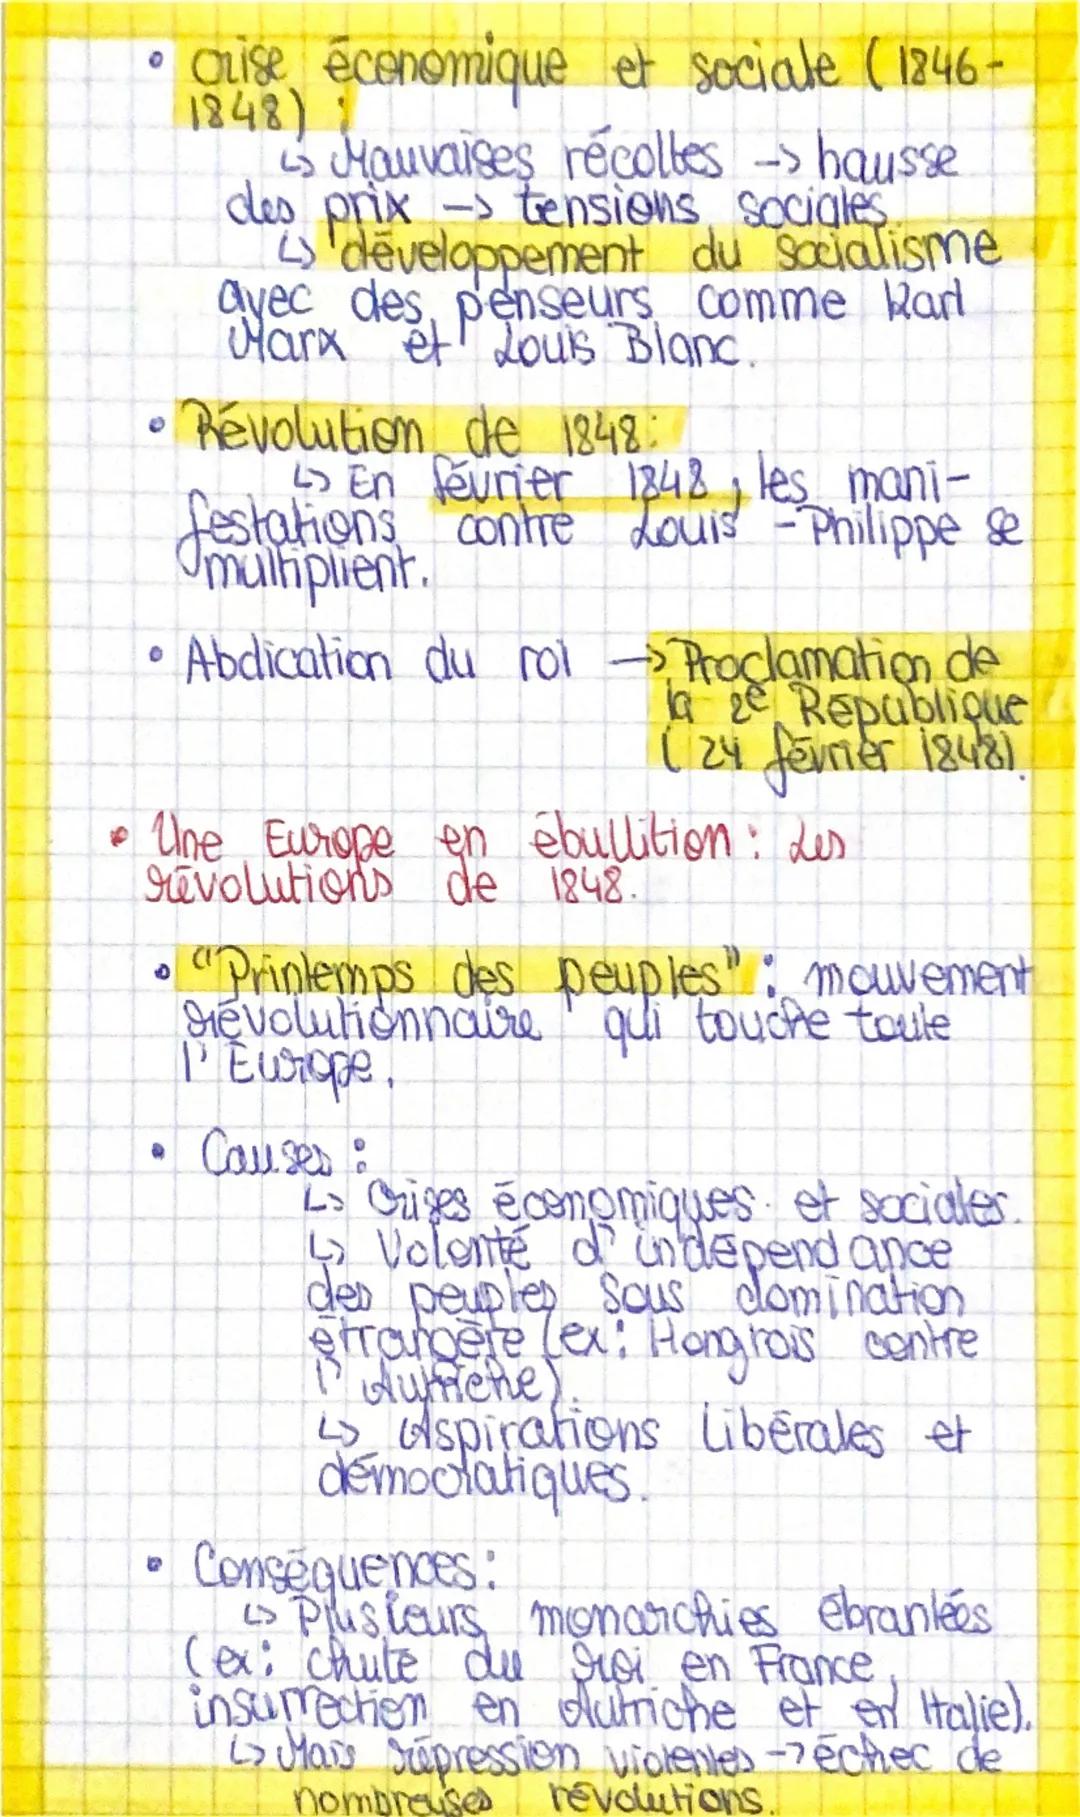 • crise économique et sociale (1846-
1848) :
↳ Mauvaises récoltes -> hausse
des prix -> tensions sociales.
↳ développement du socialisme
avec des penseurs comme Karl
Marx et Louis Blanc.
• Révolution de 1848:
↳ En février 1848, les mani-
festations contre Louis-Philippe se
multiplient.
• Abdication du roi -> Proclamation de
la 2e République
(24 février 1848).
• Une Europe en ébullition : Les
révolutions de 1848.
• "Printemps des peuples" : mouvement
révolutionnaire qui touche toute
l'Europe.
• Causes :
↳ Crises économiques et sociales.
↳ Volonté d'indépendance
des peuples sous domination
étrangère (ex: Hongrois contre
l'Autriche).
↳ Aspirations libérales et
démocratiques.
• Conséquences :
↳ Plusieurs monarchies ébranlées
(ex: chute du roi en France,
insurrection en Autriche et en Italie).
↳ Mais répression violentes -> échec de
nombreuses révolutions.